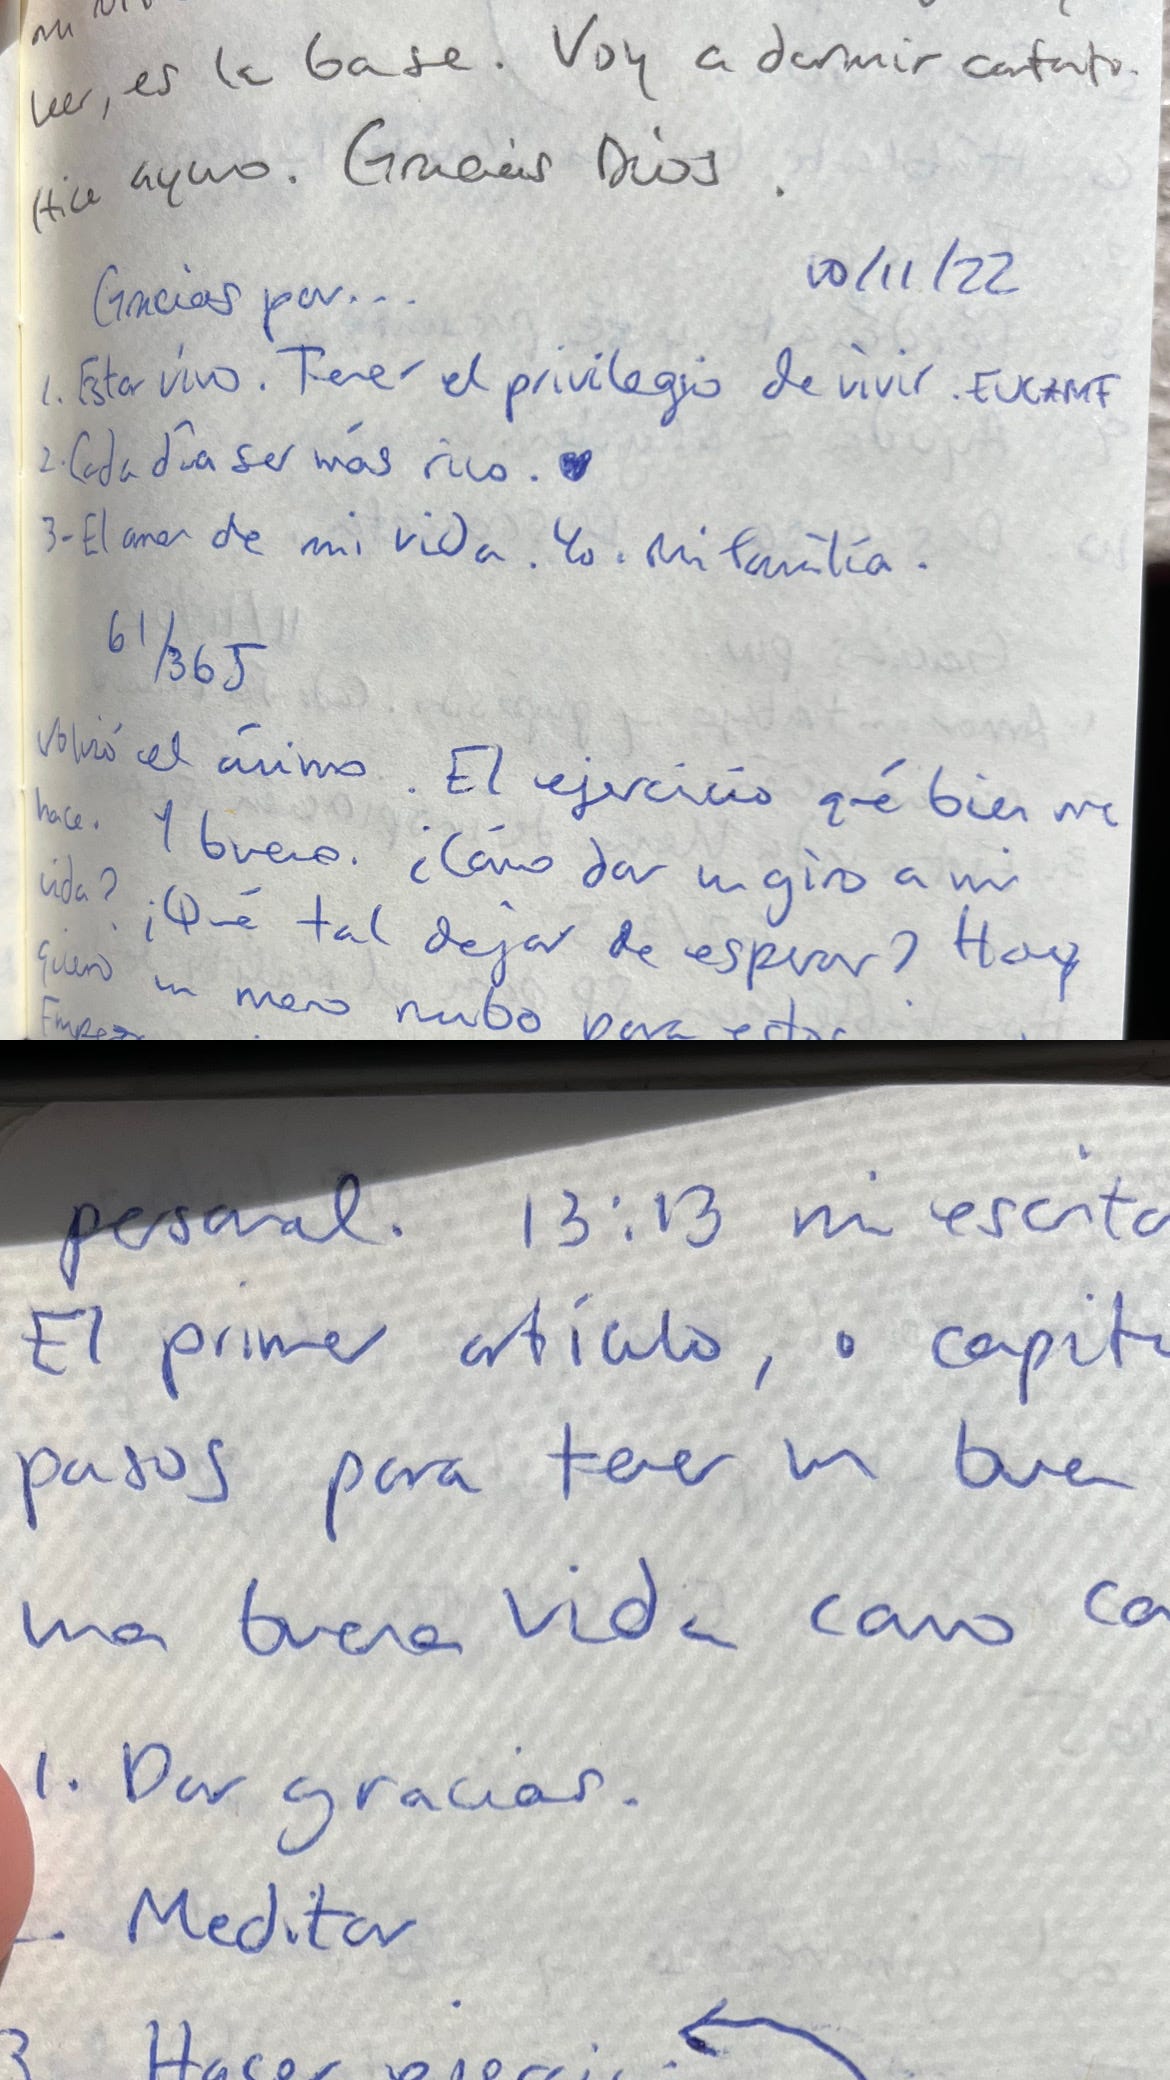 leer, es la base. Voy a dormir contento.
Hice ayuno. Gracias Dios.
10/11/22
Gracias por...
1. Estar vivo. Tener el privilegio de vivir.
2. Cada día ser más rico. ♥
3- El amor de mi vida. Yo. Mi familia.
61/365
Volvió el ánimo. El ejercicio qué bien me
hace. Y bueno. ¿Cómo dar un giro a mi
vida? ¿Qué tal dejar de esperar? Hoy
quiero un nuevo rumbo para estos
Empez
personal. 13:13 mi escrito
El primer artículo, o capít
pasos para tener un buen
una buena vida como co
1. Dar gracias.
. Meditar
3 Hacer ejerci